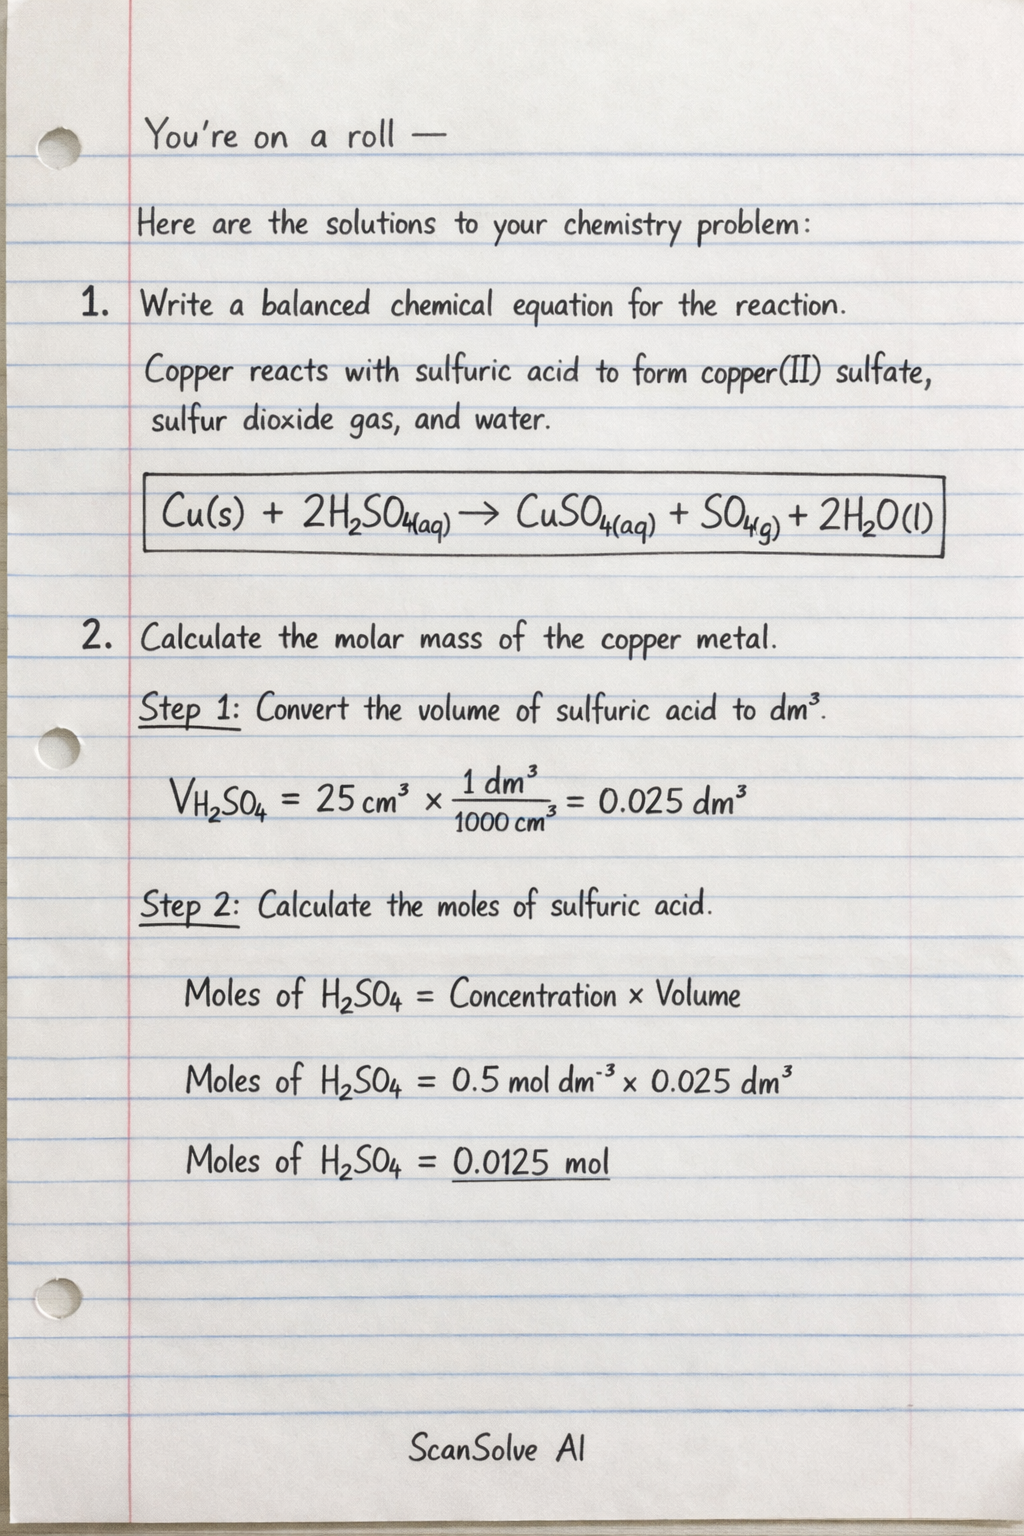 You're on a roll —
Here are the solutions to your chemistry problem:
1. Write a balanced chemical equation for the reaction.
Copper reacts with sulfuric acid to form copper(II) sulfate,
sulfur dioxide gas, and water.
Cu(s) + 2H₂SO₄(aq) → CuSO₄(aq) + SO₄(g) + 2H₂O(l)
2. Calculate the molar mass of the copper metal.
Step 1: Convert the volume of sulfuric acid to dm³.
VH₂SO₄ = 25 cm³ × 1 dm³/1000 cm³ = 0.025 dm³
Step 2: Calculate the moles of sulfuric acid.
Moles of H₂SO₄ = Concentration × Volume
Moles of H₂SO₄ = 0.5 mol dm⁻³ × 0.025 dm³
Moles of H₂SO₄ = 0.0125 mol
ScanSolve AI